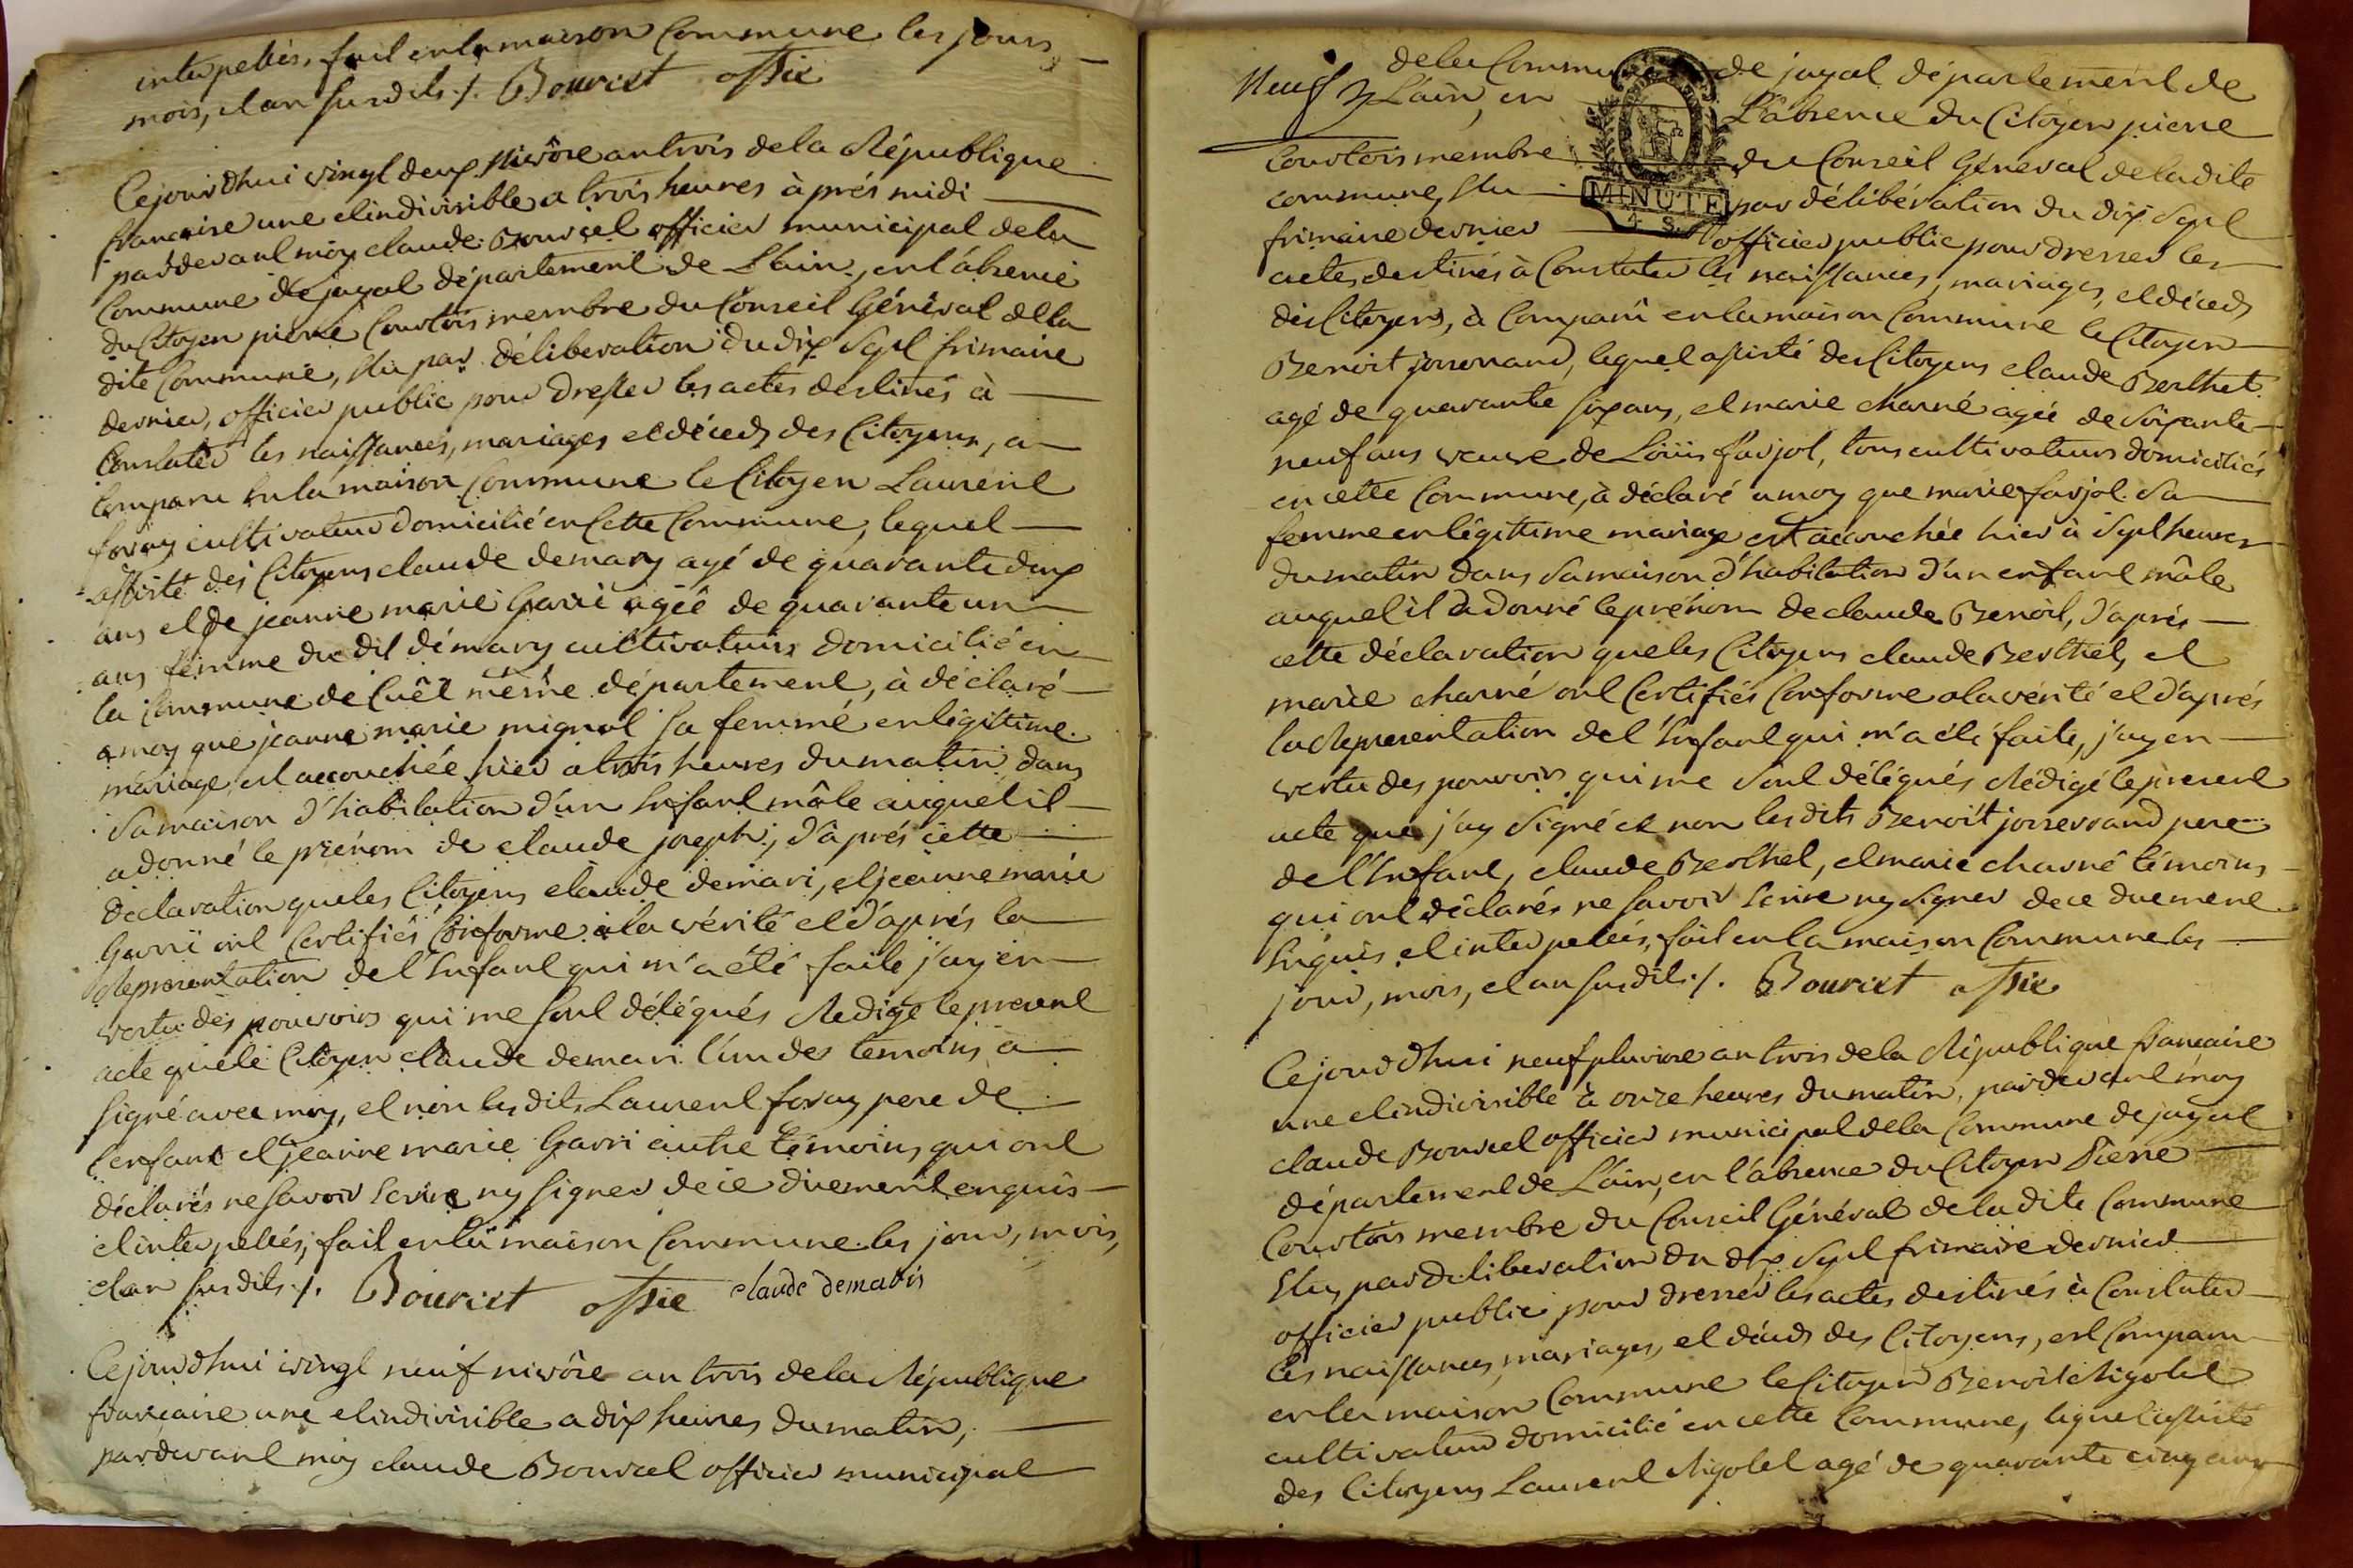 interpellés, fait en la maison Commune les jours
mois, et an susdits ./. Bouvert offic
Cejourdhui vingt deux Nivôse an trois de la République
francaise une et indivisible a trois heures à prés midi
pardevant moy claude Bouvet officier municipal de la
Commune de jayat département de L'ain, en l'absence
du Citoyen pierre Courtois membre du Conseil Général de la
dite Commune, Elu par déliberation du dix Sept frimaire
dernier, officier public pour dresser les actes destinés à
Constater les naissances, mariages et déceds des Citoyens, a
Comparu en la maison Commune le Citoyen Laurent
foray cultivateur domicilié en Cette Commune, lequel
assisté des Citoyens claude demary agé de quarante deux
ans et de jeanne marie Gavri agée de quarante un
ans femme du dit démary cultivateurs domicilié en
la Commune de Cuêt même département, à déclaré
a moy que jeanne marie mignot sa femme en légittime
mariage, est accouchée hier a trois heures du matin, dans
Sa maison d'habitation d'un Enfant mâle auquel il
a donné le prénom de claude joseph, d'après cette
déclaration que les Citoyens claude demari, et jeanne marie
Gavri ont Certifiés Conforme à la vérité et d'aprés la
Representation de l'Enfant qui m'a été faite j'ay en
vertu des pouvoirs qui me sont délégués Redigé le present
acte que le Citoyen claude demari l'un des temoins a
signé avec moy, et non les dits Laurent foray pere de
l'enfant et jeanne marie Gavri autre témoins qui ont
déclarés ne savoir Ecrire ny signer de ce duement enquis
et interpellés, fait en la maison Commune les jour, mois,
et an susdits ./. Bouvert offic claude demaris
Cejourdhui vingt neuf nivôse an trois de la République
francaise une et indivisible a dix heures du matin,
pardevant moy claude Bouvet officier municipal
Neuf
de la Commune de jayat département de
L'ain, en L'absence du Citoyen pierre
Courtois membre du Conseil Général de la dite
commune, Elu par délibération du dix Sept
MINUTE
frimaire dernier officier public pour dresser les
actes destinés à Constater les naissances, mariages, et déceds
des Citoyens, à Comparu en la maison Commune le Citoyen
Benoit josserand, lequel assisté des Citoyens claude Berthet
agé de quarante six ans, et marie charné agée de soixante
neuf ans veuve de Louis farjot, tous cultivateurs domiciliés
en cette Commune, à déclaré a moy que marie farjot sa
femme en légittime mariage est accouchée hier à Sept heures
du matin dans Sa maison d'habitation d'un enfant mâle
auquel il à donné le prénom de claude Benoit, d'aprés
cette déclaration que les Citoyens claude Berthet, et
marie charné ont Certifiés Conforme a la vérité et d'aprés
la Representation de l'Enfant qui m'a été faite, j'ay en
vertu des pouvoirs qui me sont délégués Rédigé le present
acte que j'ay Signé et non les dits Benoit josserand pere
de l'Enfant, claude Berthet, et marie charné témoins
qui ont déclarés ne savoir Ecrire ny signer de ce duement
Enquis et interpellés, fait en la maison Commune les
jour, mois, et an susdits ./. Bouvert offic
Cejourdhui neuf pluviose an trois de la République francaise
une et indivisible à onze heures du matin, pardevant moy
claude Bouvet officier municipal de la Commune de jayat
département de L'ain, en l'absence du Citoyen Pierre
Courtois membre du Conseil Général de la dite Commune
Elu, par deliberation du dix Sept frimaire dernier
officier public pour dresser les actes destinés à Constater
les naissances, mariages, et déceds des Citoyens, est Comparu
en la maison Commune le Citoyen Benoit Rigolet
cultivateur domicilié en cette Commune, lequel assisté
des Citoyens Laurent Rigolet agé de quarante cinq ans